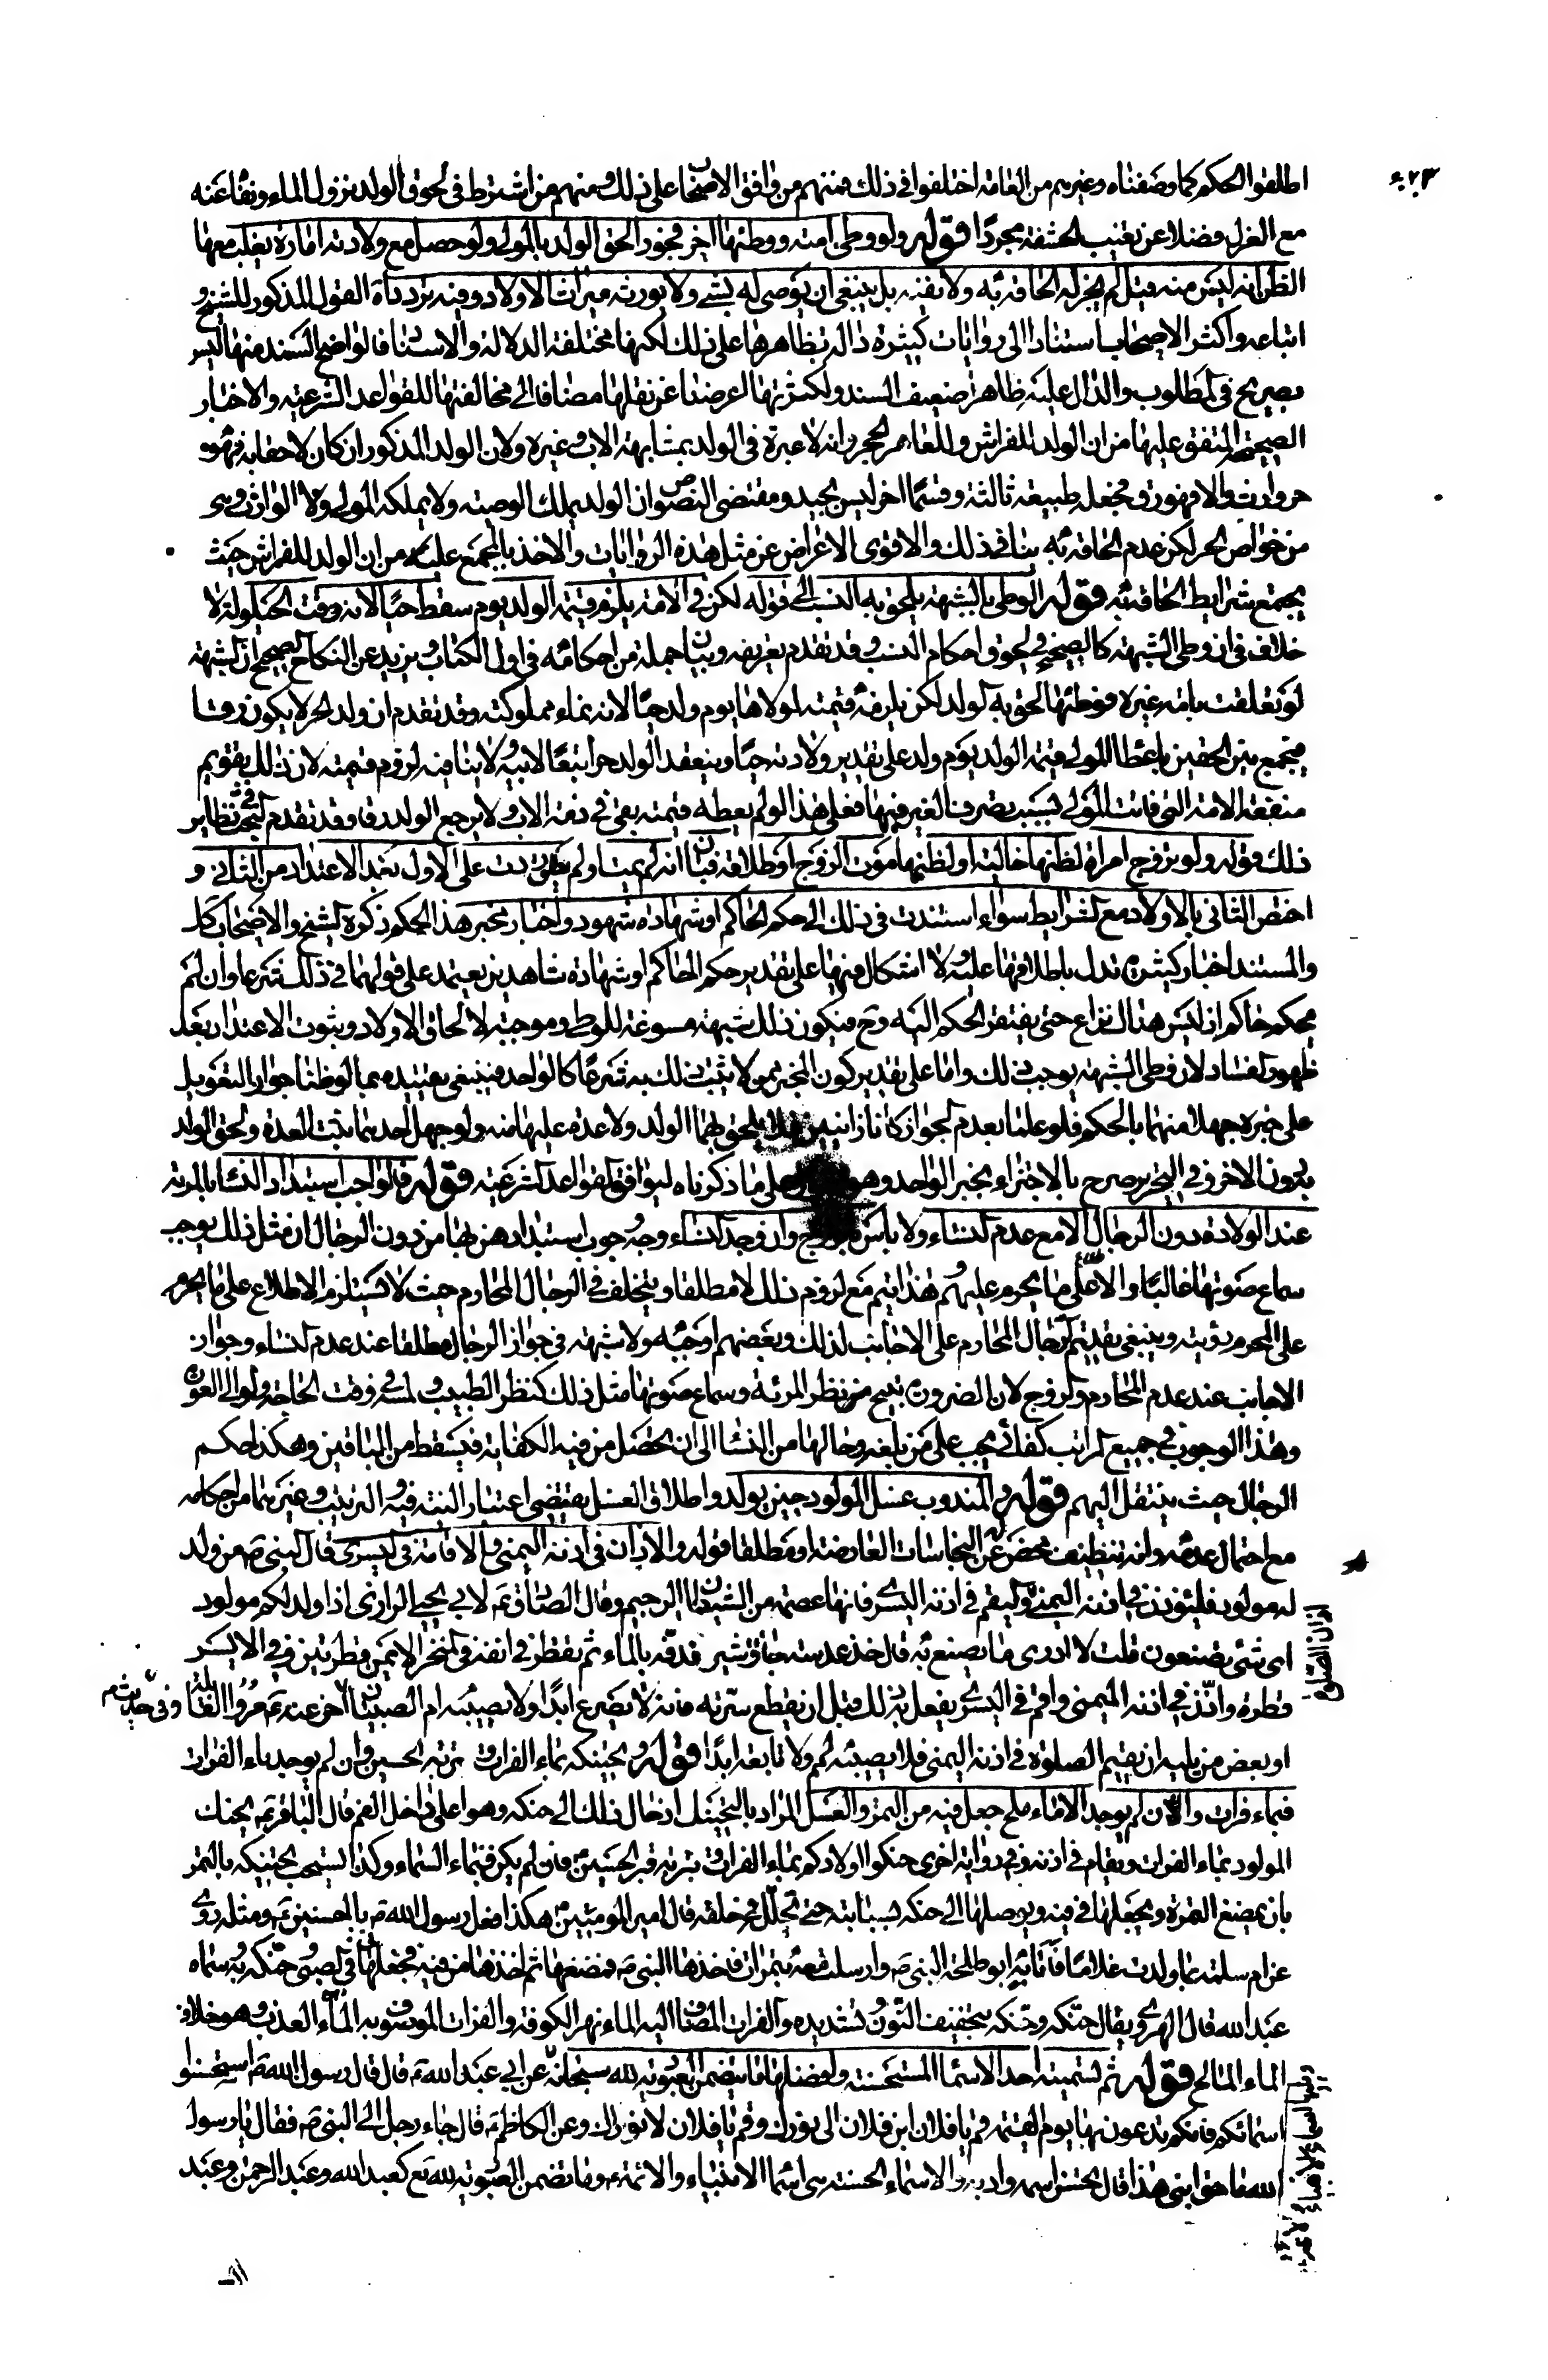 اطلقوا الحكم كما وصفناه وغيرهم من العامة اختلفوا في ذلك فمنهم من وافق الاصحاب على ذلك ومنهم من اشترط في لحوق الولد نزول الماء ونفاه عنه
مع العزل فضلا عن تغيب الحشفة مجردا قوله ولو وطى امته ووطئها اخر فجورا لحق الولد بالمولى ولو حصل مع ولادته امارة يغلب معها
الظن انه ليس منه قيل لم يجز له الحاقه به ولا نفيه بل ينبغي ان يوصى له بشئ ولا يورثه ميراث الاولاد وفيه تردد هذا القول المذكور للشيخ و
اتباعه واكثر الاصحاب استنادا الى روايات كثيرة دالة بظاهرها على ذلك لكنها مختلفة الدلالة والاسناد فالواضح السند منها ليس
بصريح في المطلوب والدال عليه ظاهرا ضعيف السند ولكثرتها اعرضنا عن نقلها مضافا الى مخالفتها للقواعد الشرعية والاخبار
الصحيحة المتفق عليها من ان الولد للفراش وللعاهر الحجر وانه لا عبرة في الولد بمشابهة الاب وغيره ولان الولد المذكور ان كان لاحقا به فهو
حر وارث والا فهو رق فجعله طبيعة ثالثة وقسما اخر ليس بجيد ومقتضى النصوص ان الولد يملك الوصية ولا يملكه المولى ولا الوارث وهى
من خواص الحر لكن عدم الحاقه به ينافي ذلك والاقوى الاعراض عن مثل هذه الروايات والاخذ بالمجمع عليه من ان الولد للفراش حيث
يجتمع شرايط الحاقه به قوله الوطى بالشبهة يلحق به النسب الى قوله لكن في الامة يلزم قيمة الولد يوم سقط حيا لانه وقت الحيلولة لا
خلاف في ان وطى الشبهة كالصحيح في لحوق احكام النسب وقد تقدم تعريفه وبيان جملة من احكامه في اول الكتاب ويزيد عن النكاح الصحيح ان الشبهة
لو تعلقت بامة غيره فوطئها لحق به الولد لكن يلزمه قيمته لمولاها يوم ولد حيا لانه نماء مملوكته وقد تقدم ان ولد الحر لا يكون رقا
فيجمع بين الحقين باعطاء المولى قيمة الولد يوم ولد على تقدير ولادته حيا وينعقد الولد حرا تبعا لابيه ولا ينافيه لزوم قيمته لان ذلك تقويم
منفعة الامة التي فاتت المولى بسبب تصرف الغير فيها فعلى هذا لو لم يعطه قيمته بقى في ذمة الاب ولا يرجع الولد رقا وقد تقدم البحث في نظاير
ذلك قوله ولو تزوج امراة لظنها خالية او لظنها موت الزوج او طلاقه فبان انه لم يمت ولم يطلق ردت على الاول بعد الاعتداد من الثاني و
اختص الثاني بالاولاد مع الشرايط سواء استندت في ذلك الى حكم الحاكم او شهادة شهود او اخبار مخبر هذا الحكم ذكره الشيخ والاصحاب كك
والمستند اخبار كثيرة تدل باطلاقها عليه ولا اشكال فيها على تقدير حكم الحاكم او شهادة شاهدين يعتمد على قولهما في ذلك شرعا وان لم
يحكم حاكم اذ ليس هناك نزاع حتى يفتقر الحكم اليه وح فيكون ذلك شبهة مسوغة للوطى وموجبة لالحاق الاولاد وثبوت الاعتداد بعد
ظهور الفساد لان وطى الشبهة يوجب ذلك واما على تقدير كون المخبر ممن لا يثبت ذلك به شرعا كالواحد فينبغي تقييده بما لو ظنا جواز التعويل
على خبره جهلا منهما بالحكم فلو علما بعدم الجواز كانا زانيين فلا يلحق بهما الولد ولا عدة عليها منه ولو جهل احدهما ثبتت العدة ولحق الولد
به دون الاخر وفي التحرير صرح بالاجتزاء بخبر الواحد وهو على ما ذكرناه ليوافق القواعد الشرعية قوله فالواجب استبداد النساء بالمرئة
عند الولادة دون الرجال الا مع عدم النساء ولا باس بالزوج وان وجد النساء وجه وجوب استبدادهن بها من دون الرجال ان مثل ذلك يوجب
سماع صوتها غالبا والاطلاع على ما يحرم عليهم هذا يتم مع لزوم ذلك لا مطلقا ويتخلف في الرجال المحارم حيث لا تستلزم الاطلاع على ما يحرم
على المحرم رؤيته وينبغي تقديم الرجال المحارم على الاجانب لذلك وبعضهم اوجبه ولا شبهة في جواز الرجال مطلقا عند عدم النساء وجواز
الاجانب عند عدم المحارم والزوج لان الضرورة تبيح من نظر المرئة وسماع صوتها مثل ذلك كنظر الطبيب ولمسه في وقت الحاجة ولو الى العورة
وهذا الوجوب في جميع المراتب كفائي يجب على من بلغه حالها من النساء الى ان تحصل من فيه الكفاية فيسقط من الباقين وهكذا حكم
الرجال حيث ينتقل اليهم قوله والمندوب غسل المولود حين يولد واطلاق الغسل يقتضي اعتبار النية فيه والترتيب وغيرهما من احكامه
مع احتمال عدمه وانه تنظيف محض عن النجاسات العارضة او مطلقا قوله والاذان في اذنه اليمنى والاقامة في اليسرى قال النبي ص من ولد
له مولود فليؤذن في اذنه اليمنى وليقم في اذنه اليسرى فانها عصمة من الشيطان الرجيم وقال الصادق ع لابي يحيى الرازي اذا ولد لكم مولود
اى شئ تصنعون قلت لا ادرى ما يصنع به قال خذ عدسة جاوشير فدفه بالماء ثم تقطر في انفه في المنخر الايمن قطرتين وفي الايسر
قطرة واذن في اذنه اليمنى واقم في اليسرى يفعل به ذلك قبل ان يقطع سرته فانه لا يفزع ابدا ولا يصيبه ام الصبيان وفي حديث اخر عنه ع مروا القابلة
او بعض من يليه ان يقيم الصلوة في اذنه اليمنى فلا يصيبه لمم ولا تابعة ابدا قوله ويحنكه بماء الفرات وتربة الحسين وان لم يوجد ماء الفرات
فبماء فرات وان لم يوجد الا ماء ملح جعل فيه من التمر والعسل المراد بالتحنيك ادخال ذلك الى حنكه وهو اعلى داخل الفم قال الباقر ع يحنك
المولود بماء الفرات ويقام في اذنه وفي رواية اخرى حنكوا اولادكم بماء الفرات وبتربة قبر الحسين ع فان لم يكن فبماء السماء وكذا يستحب تحنيكه بالتمر
بان يمضغ التمرة ويجعلها في فيه ويوصلها الى حنكه بسبابته حتى تحلل في حلقه قال امير المؤمنين ع هكذا فعل رسول الله ص بالحسنين ع ومثله روى
عن ام سلمة لما ولدت غلاما فاتى به ابو طلحة النبي ص وارسلت معه بتمرات فاخذها النبي ص فمضغها ثم اخذها من فيه فجعلها في في الصبي وحنكه به وسماه
عبد الله قال الهروى يقال حنكه وحنكه بتخفيف النون وتشديده والفرات المضاف اليه الماء نهر الكوفة والفرات الموصوف به الماء العذب وهو خلاف
الماء المالح قوله ثم تسميته احد الاسماء المستحسنة وافضلها ما يتضمن العبودية لله سبحانه عن ابي عبد الله ع قال قال رسول الله ص استحسنوا
اسمائكم فانكم تدعون بها يوم القيمة قم يا فلان ابن فلان الى نورك وقم يا فلان لا نور لك وعن الكاظم ع قال جاء رجل الى النبي ص فقال يا رسول
الله ما حق ابني هذا قال تحسن اسمه وادبه والاسماء الحسنة هى اسماء الانبياء والائمة ع وما تضمن العبودية لله تع كعبد الله وعبد الرحمن وعبد